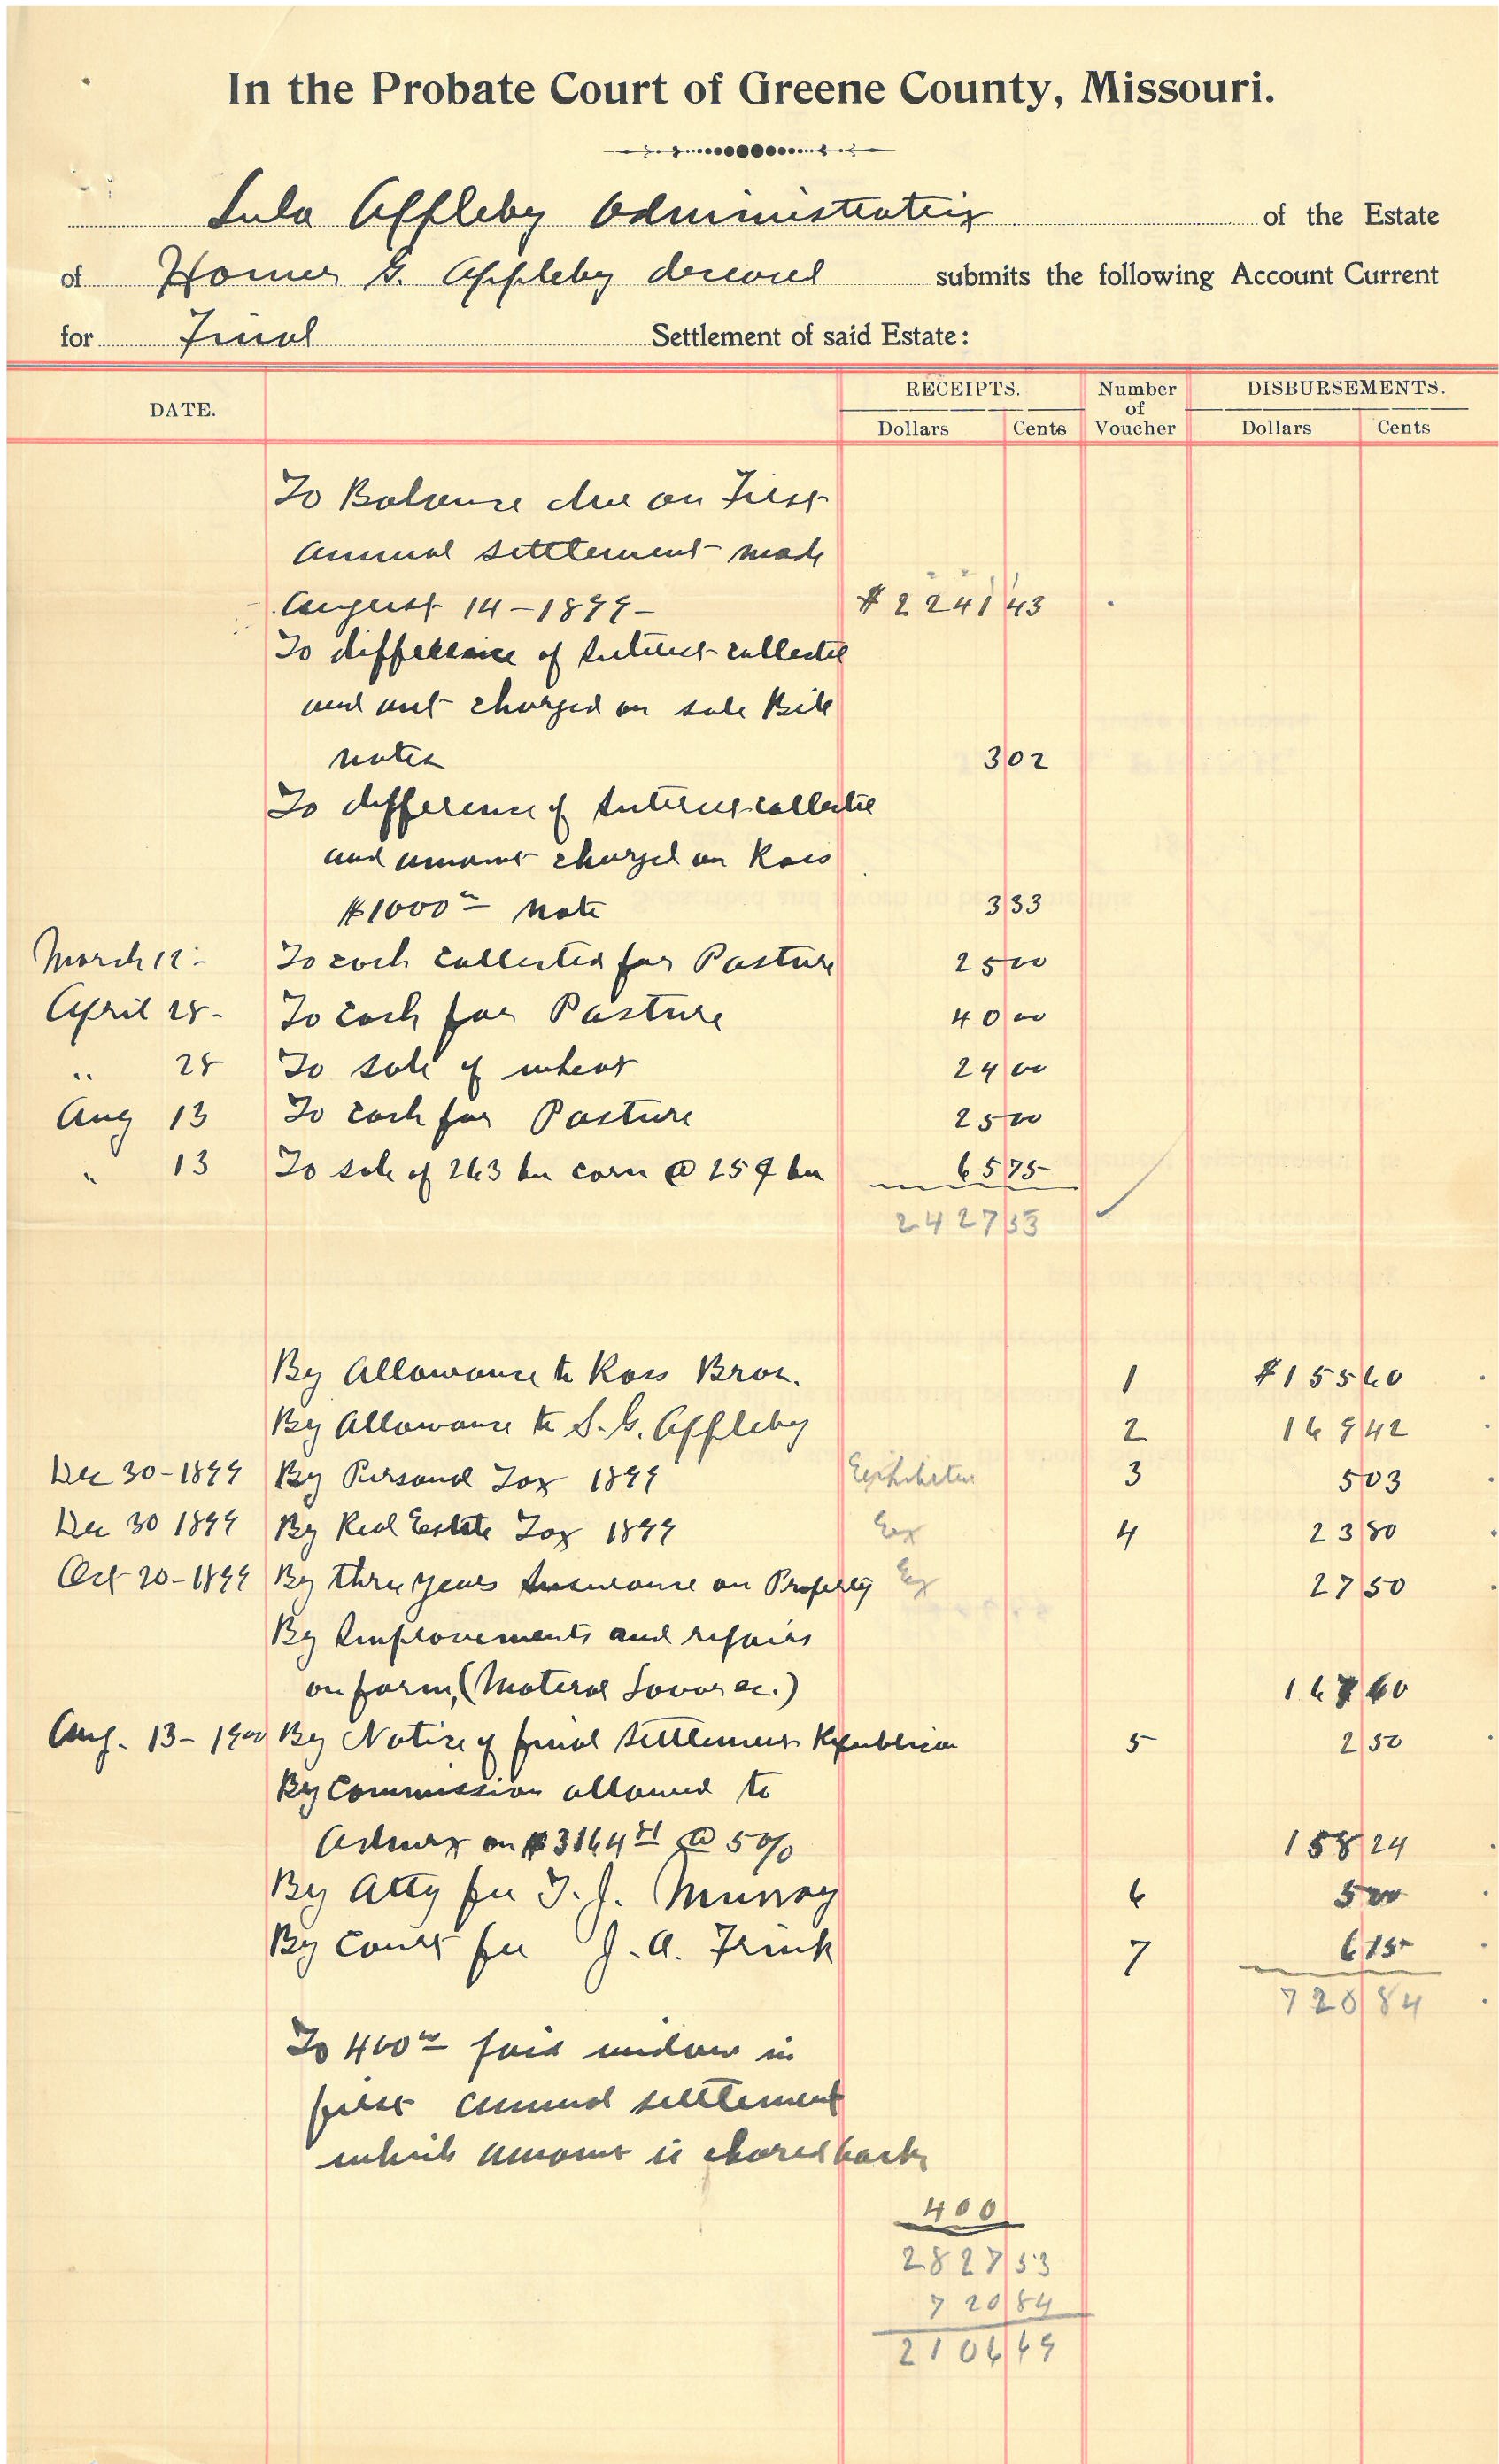 In the Probate Court of Greene County, Missouri.
Lula Appleby Administratrix of the Estate
of Homer G. Appleby deceased submits the following Account Current
for Final Settlement of said Estate:
DATE. RECEIPTS. Number of Voucher DISBURSEMENTS.
Dollars Cents Dollars Cents
To Balance due on First
annual settlement made
August 14-1899- $2241 43
To difference of Interest collected
and not charged on sale Bill
notes 3 02
To difference of Interest collected
and amount charged on Ross
$1000 00 note 3 33
March 12- To cash collected for Pasture 25 00
April 28- To cash for Pasture 40 00
" 28 To sale of wheat 24 00
Aug 13 To cash for Pasture 25 00
" 13 To sale of 263 bu corn @ 25¢ bu 65 75
2427 53
By Allowance to Ross Bros. 1 $155 60
By Allowance to S. G. Appleby 2 169 42
Dec 30-1899 By Personal Tax 1899 3 5 03
Dec 30 1899 By Real Estate Tax 1899 Ex 4 23 80
Oct 20-1899 By three years Insurance on Property Ex 27 50
By Improvements and repairs
on farm, (Material Lavor &c.) 167 60
Aug. 13-1900 By Notice of final Settlement Republican 5 2 50
By Commission allowed to
Admrx on $3164 81 @ 5% 158 24
By Atty fee T. J. Murray 6 5 00
By Court fee J. A. Frink 7 6 15
720 84
To 400 00 paid widow in
first annual settlement
which amount is chared back
400
2827 53
720 84
2106 69